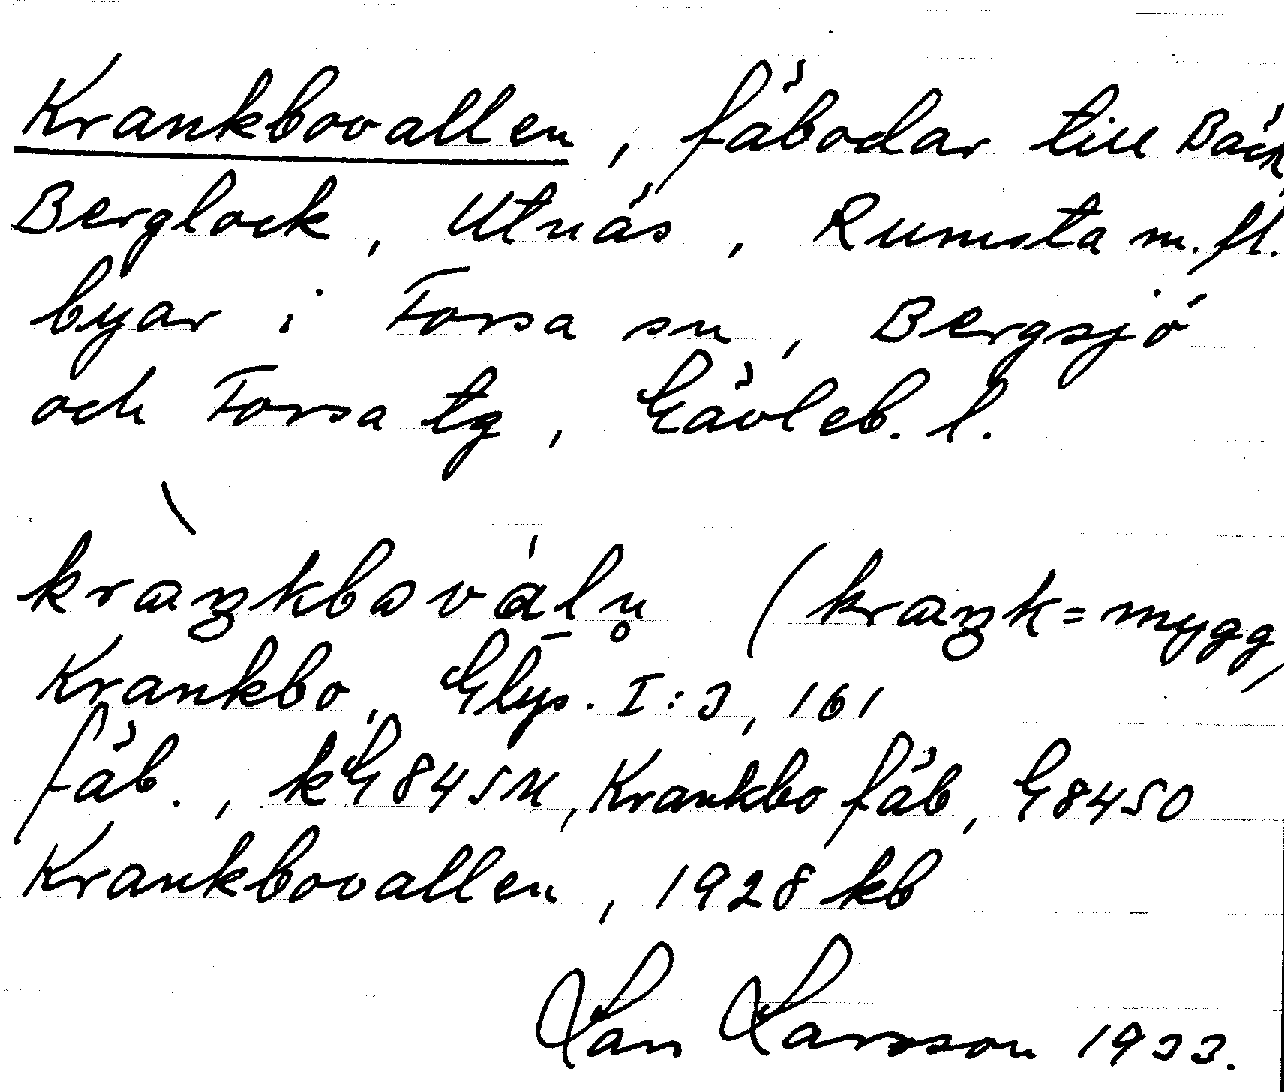 Krankbovallen, fäbodar till Bäck
Berglock, Utnäs, Rumsta m.fl.
byar i Forsa sn, Bergsjö
och Forsa tg, Gävleb. l.
kraŋkbováln̥ (kraŋk=mygg)
Krankbo, Glys. I:3, 161
fäb., kG845M, Krankbo fäb, G8450
Krankbovallen, 1928 kb
Lars Larsson 1933.